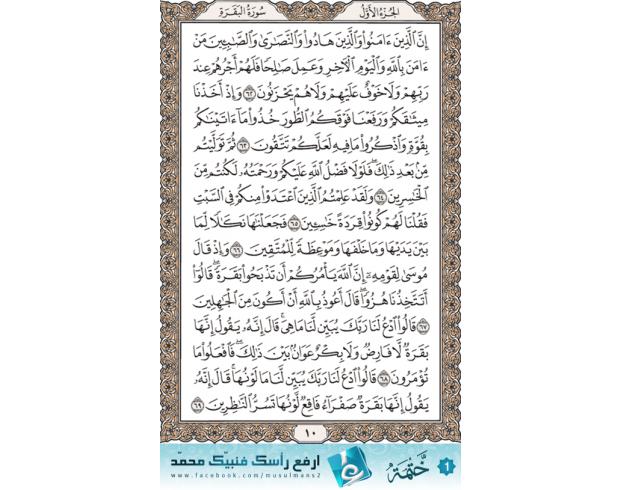 الجزء الأول سورة البقرة
إِنَّ ٱلَّذِينَ ءَامَنُوا۟ وَٱلَّذِينَ هَادُوا۟ وَٱلنَّصَـٰرَىٰ وَٱلصَّـٰبِـِٔينَ مَنْ
ءَامَنَ بِٱللَّهِ وَٱلْيَوْمِ ٱلْـَٔاخِرِ وَعَمِلَ صَـٰلِحًا فَلَهُمْ أَجْرُهُمْ عِندَ
رَبِّهِمْ وَلَا خَوْفٌ عَلَيْهِمْ وَلَا هُمْ يَحْزَنُونَ ٦٢ وَإِذْ أَخَذْنَا
مِيثَـٰقَكُمْ وَرَفَعْنَا فَوْقَكُمُ ٱلطُّورَ خُذُوا۟ مَآ ءَاتَيْنَـٰكُم
بِقُوَّةٍ وَٱذْكُرُوا۟ مَا فِيهِ لَعَلَّكُمْ تَتَّقُونَ ٦٣ ثُمَّ تَوَلَّيْتُم
مِّنۢ بَعْدِ ذَٰلِكَ ۖ فَلَوْلَا فَضْلُ ٱللَّهِ عَلَيْكُمْ وَرَحْمَتُهُۥ لَكُنتُم مِّنَ
ٱلْخَـٰسِرِينَ ٦٤ وَلَقَدْ عَلِمْتُمُ ٱلَّذِينَ ٱعْتَدَوْا۟ مِنكُمْ فِى ٱلسَّبْتِ
فَقُلْنَا لَهُمْ كُونُوا۟ قِرَدَةً خَـٰسِـِٔينَ ٦٥ فَجَعَلْنَـٰهَا نَكَـٰلًا لِّمَا
بَيْنَ يَدَيْهَا وَمَا خَلْفَهَا وَمَوْعِظَةً لِّلْمُتَّقِينَ ٦٦ وَإِذْ قَالَ
مُوسَىٰ لِقَوْمِهِۦٓ إِنَّ ٱللَّهَ يَأْمُرُكُمْ أَن تَذْبَحُوا۟ بَقَرَةً ۖ قَالُوٓا۟
أَتَتَّخِذُنَا هُزُوًا ۖ قَالَ أَعُوذُ بِٱللَّهِ أَنْ أَكُونَ مِنَ ٱلْجَـٰهِلِينَ
٦٧ قَالُوا۟ ٱدْعُ لَنَا رَبَّكَ يُبَيِّن لَّنَا مَا هِىَ ۚ قَالَ إِنَّهُۥ يَقُولُ إِنَّهَا
بَقَرَةٌ لَّا فَارِضٌ وَلَا بِكْرٌ عَوَانٌۢ بَيْنَ ذَٰلِكَ ۖ فَٱفْعَلُوا۟ مَا
تُؤْمَرُونَ ٦٨ قَالُوا۟ ٱدْعُ لَنَا رَبَّكَ يُبَيِّن لَّنَا مَا لَوْنُهَا ۚ قَالَ إِنَّهُۥ
يَقُولُ إِنَّهَا بَقَرَةٌ صَفْرَآءُ فَاقِعٌ لَّوْنُهَا تَسُرُّ ٱلنَّـٰظِرِينَ ٦٩
١٠
١ خَتْمَة ارفع رأسك فنبيّك محمّد
www.facebook.com/musulmans2